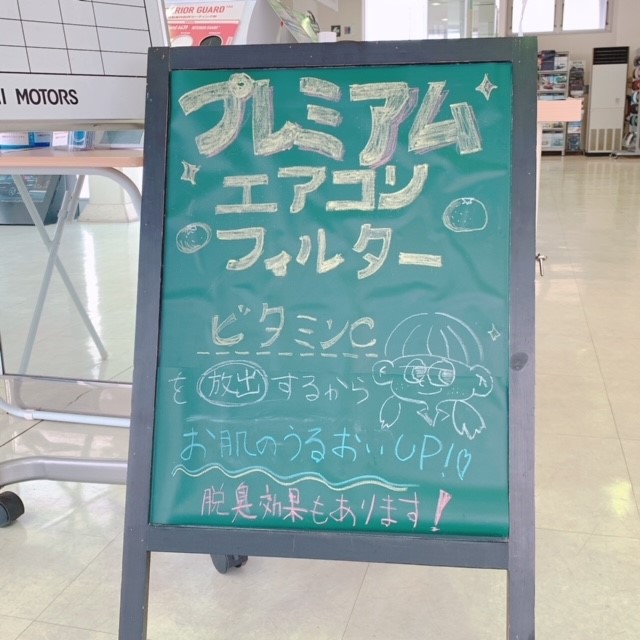 ERIOR GUARD
I MOTORS
プレミアム
エアコン
フィルター
ビタミンC
を放出するから
お肌のうるおいUP!
脱臭効果もあります!